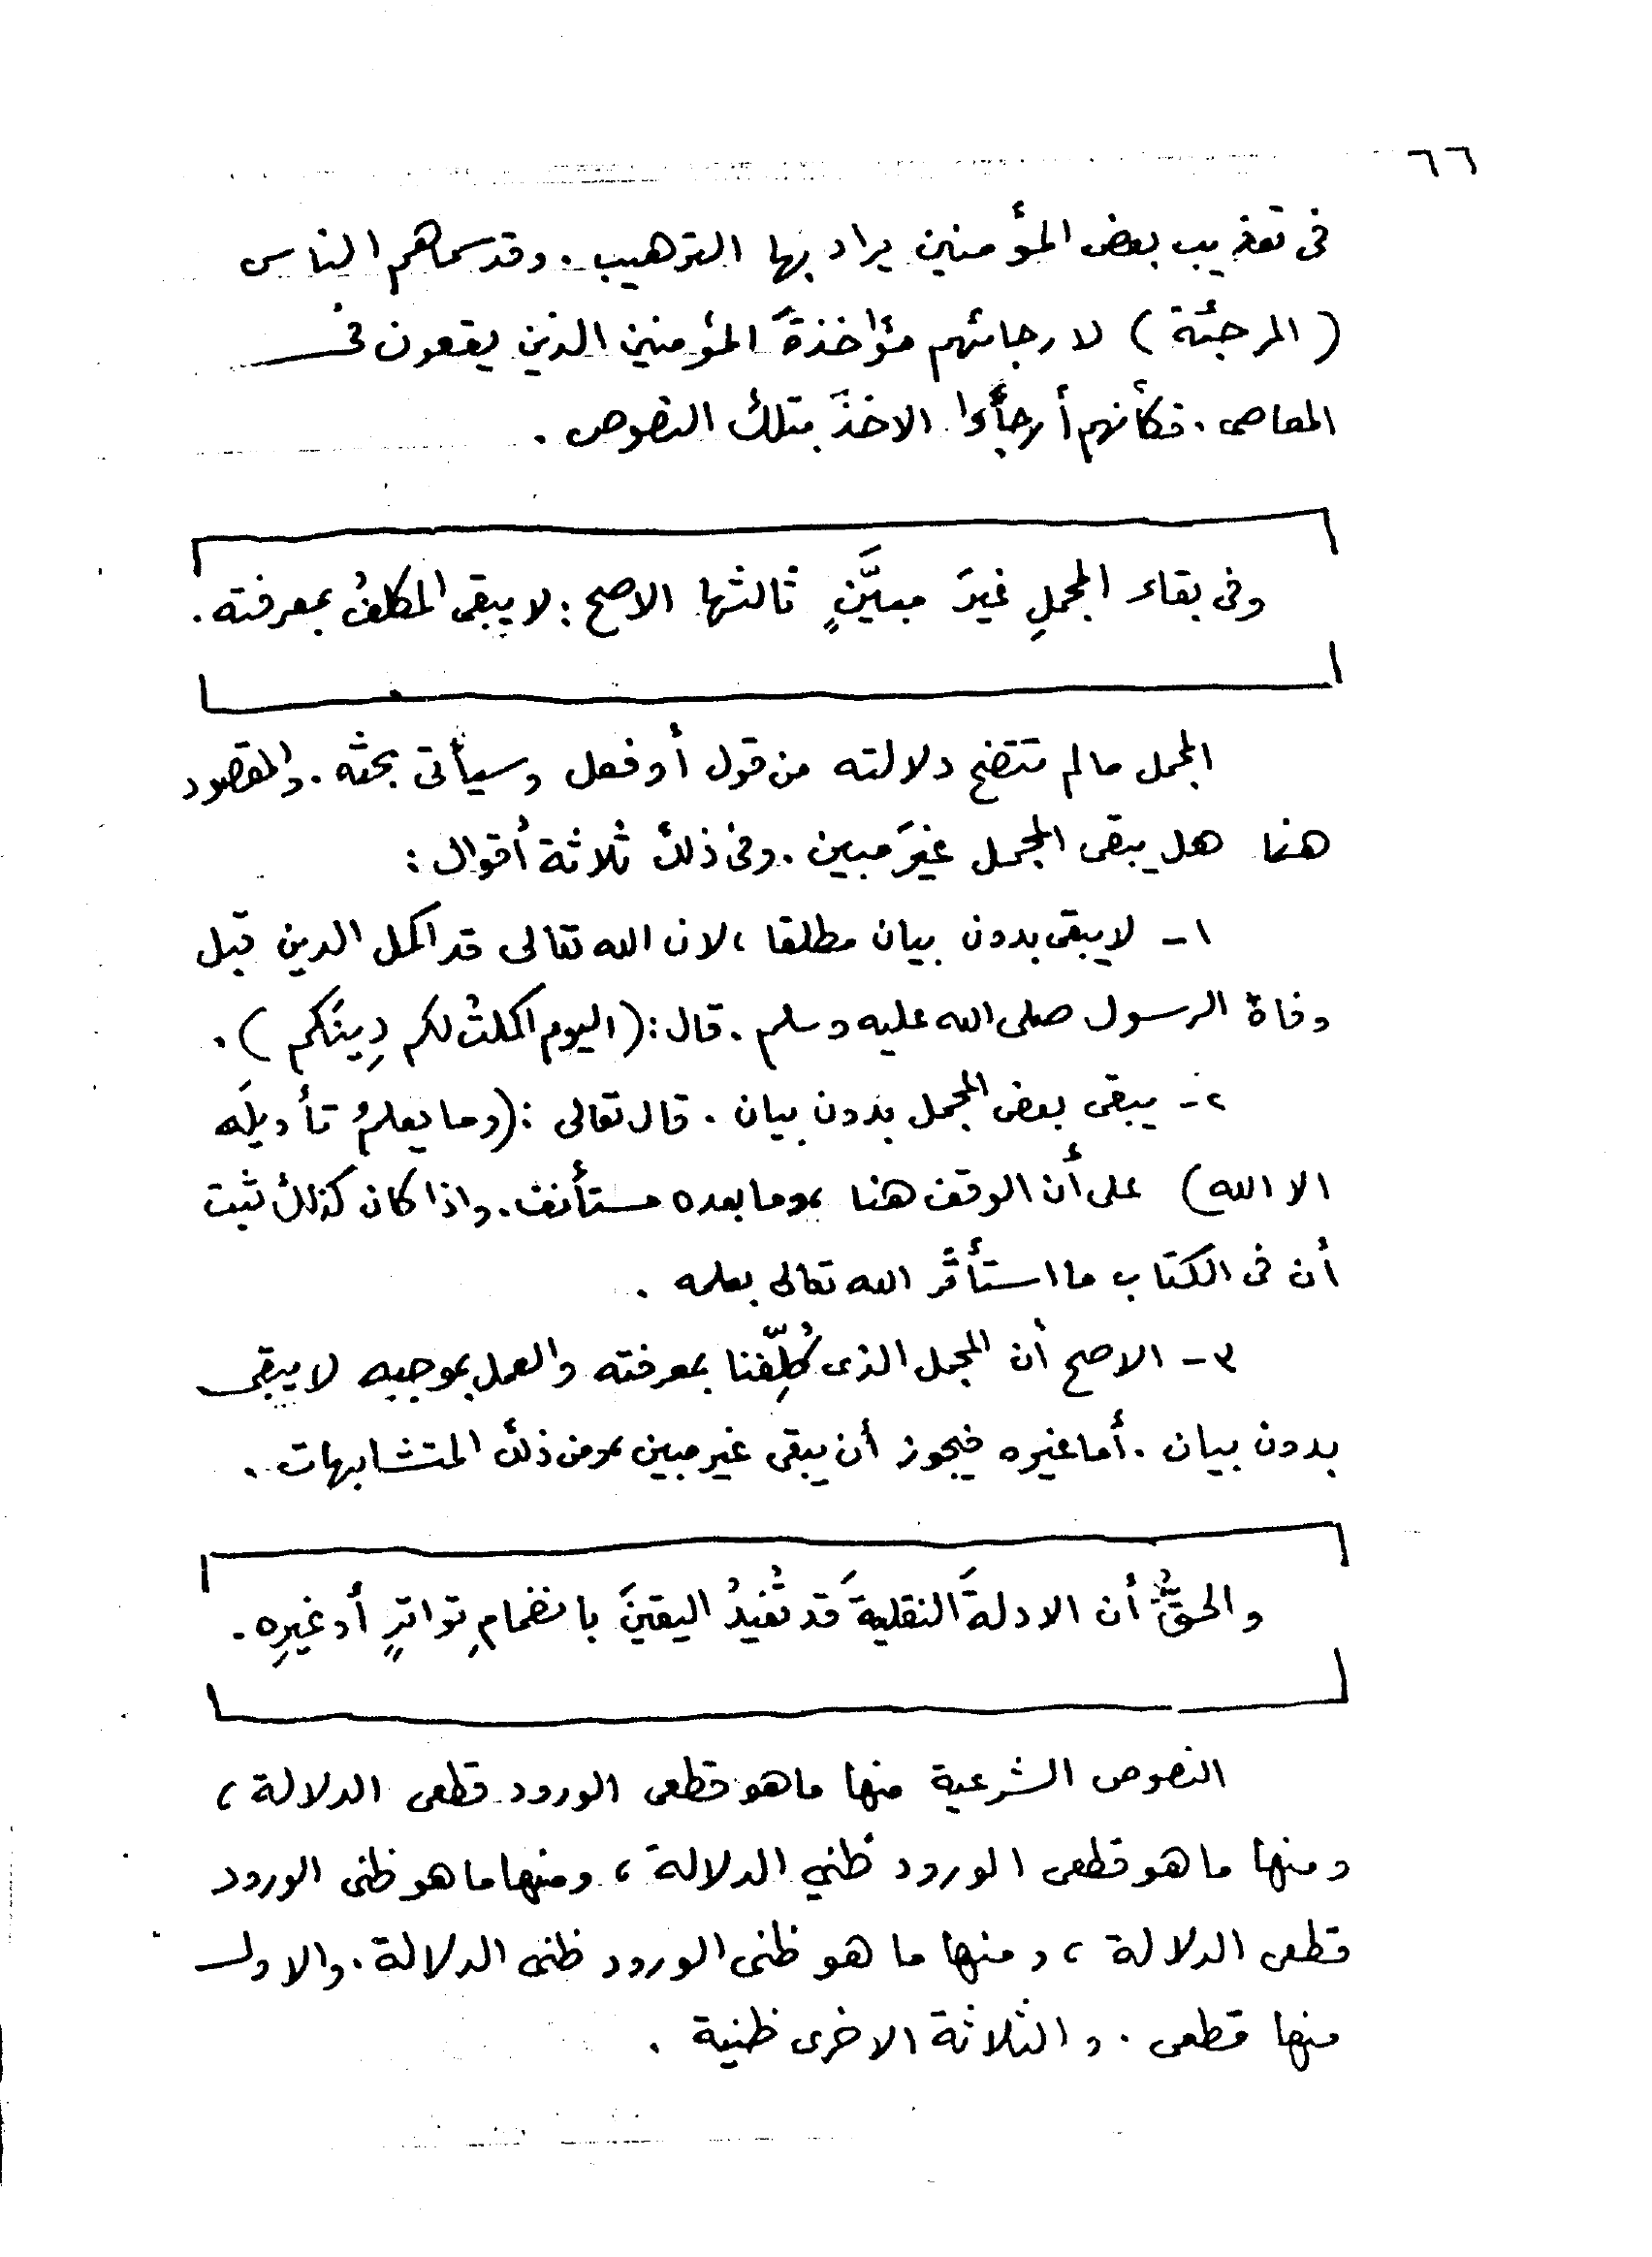 ٦٦
فى تعذيب بعض المؤمنين يراد بها الترهيب . وقد سماهم الناس
( المرجئة ) لارجائهم مؤاخذةَ المؤمنين الذين يقعون فى
المعاصى . فكأنهم أرجأوا الاخذَ بتلك النصوص .
وفى بقاء المجملِ غيرَ مبيَّنٍ ثالثها الاصح : لا يبقى المكلفُ بمعرفته .
المجمل مالم تتضح دلالته من قول أو فعل وسيأتى بحثه . والمقصود
هنا هل يبقى المجمل غيرَ مبين . وفى ذلك ثلاثة أقوال :
١ - لا يبقى بدون بيان مطلقا ، لان الله تعالى قد اكمل الدين قبل
وفاة الرسول صلى الله عليه وسلم . قال : ( اليوم اكملتُ لكم دِينَكم ) .
٢ - يبقى بعض المجمل بدون بيان . قال تعالى : ( وما يعلمُ تأويلَه
الا الله ) على أن الوقف هنا ، وما بعده مستأنف . واذا كان كذلك ثبت
أن فى الكتاب ما استأثر الله تعالى بعلمه .
٣ - الاصح أن المجمل الذى كُلِّفنا بمعرفته والعمل بموجبه لا يبقى
بدون بيان . أما غيره فيجوز أن يبقى غير مبين ، ومن ذلك المتشابهات .
والحقُّ أن الادلةَ النقليةَ قد تُفيدُ اليقينَ بانضمامِ تواترٍ أو غيرِه .
النصوص الشرعية منها ماهو قطعى الورود قطعى الدلالة ،
ومنها ما هو قطعى الورود ظني الدلالة ، ومنها ما هو ظنى الورود
قطعى الدلالة ، ومنها ما هو ظنى الورود ظنى الدلالة . والاول
منها قطعى . والثلاثة الاخرى ظنية .